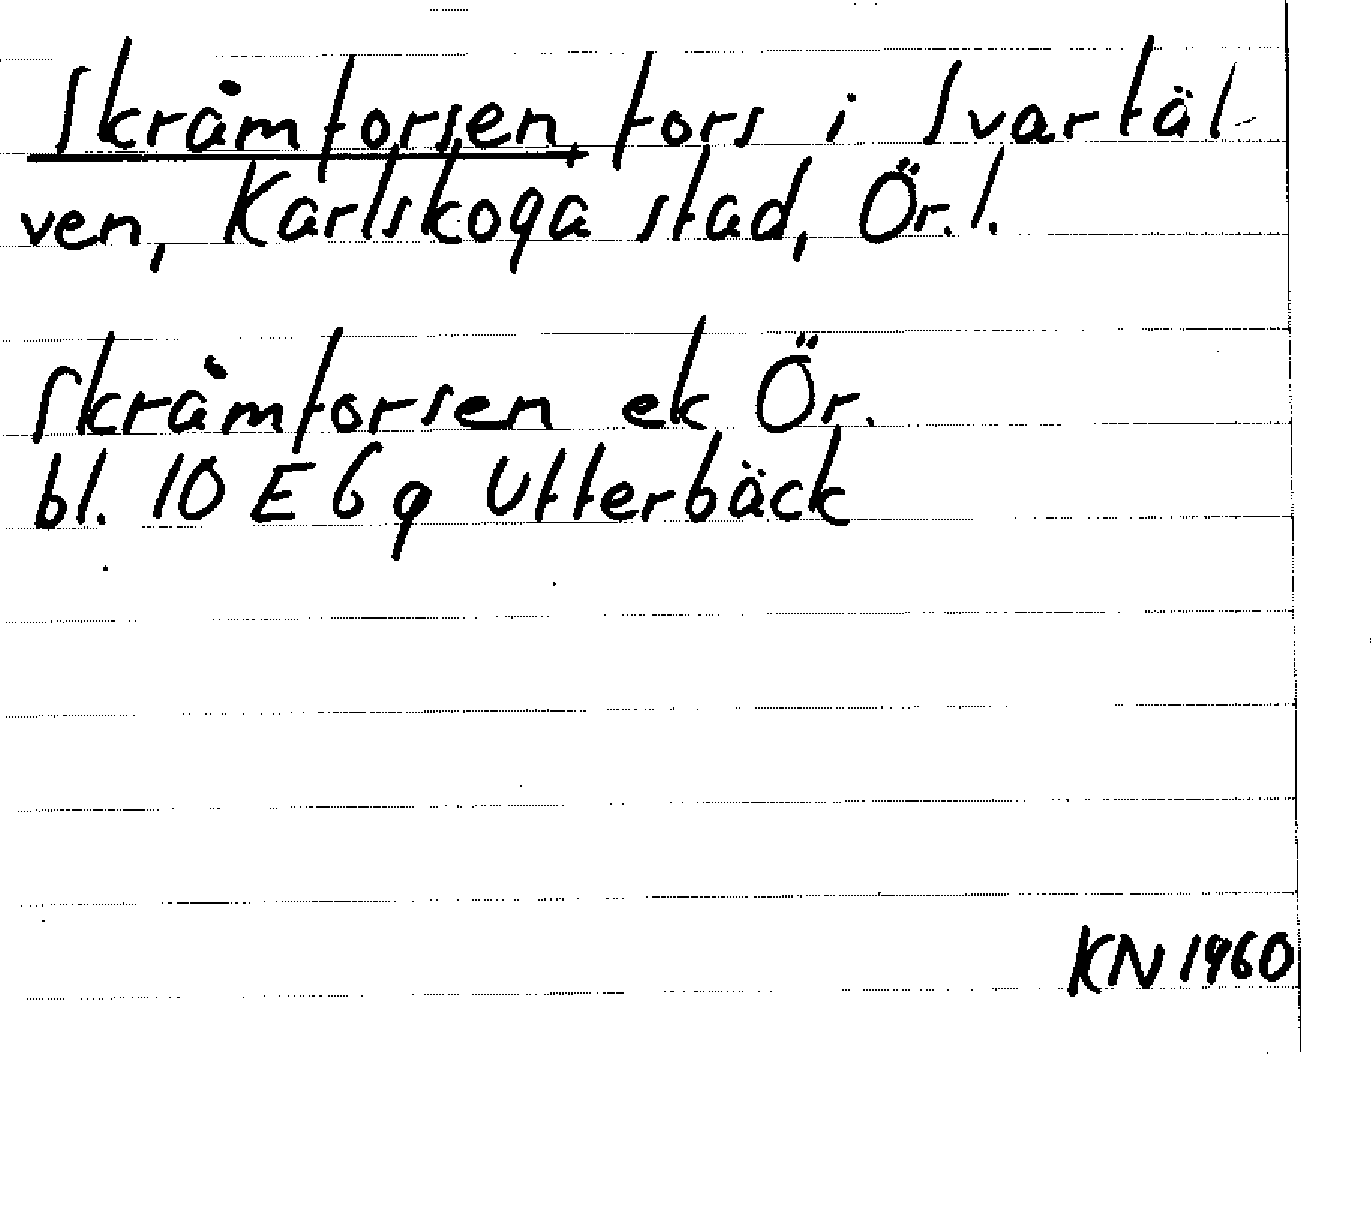 Skråmforsen, fors i Svartäl-
ven, Karlskoga stad, Ör.l.
Skråmforsen ek Ör.
bl. 10 E 6 g Utterbäck
KN 1960